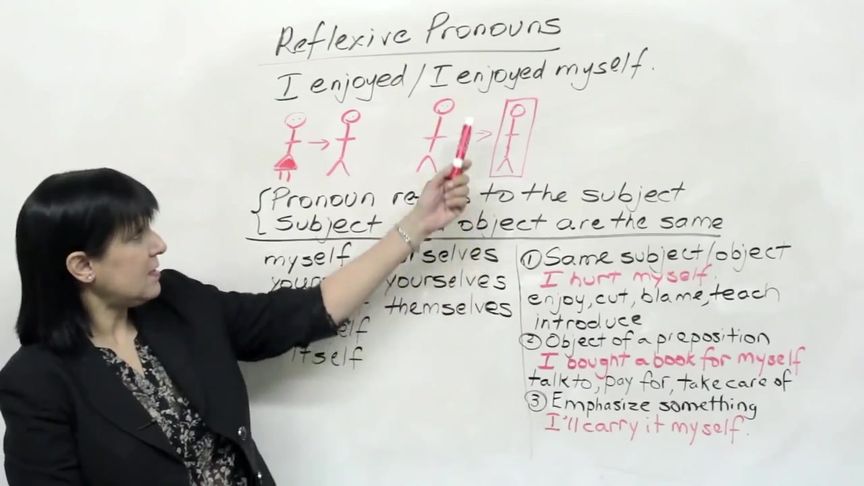 Reflexive Pronouns
I enjoyed / I enjoyed myself.
Pronoun to the subject
Subject object are the same
myself
yourselves
themselves
itself
① Same subject/object
I hurt myself.
enjoy, cut, blame, teach
introduce
② Object of a preposition
I bought a book for myself
talk to, pay for, take care of
③ Emphasize something
I'll carry it myself.